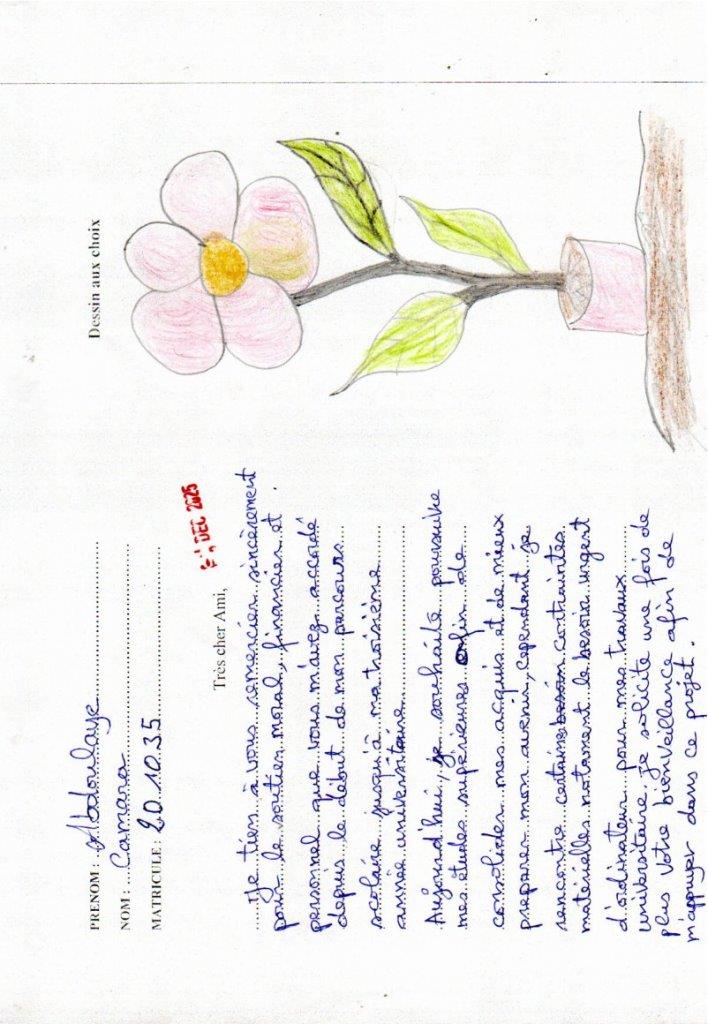 PRENOM : Abdoulaye
NOM : Camara
MATRICULE : 20.10.35
DEC 2025
Très cher Ami,
Je tien à vous remercier sincèrement
pour le soutien moral, financier et
personnel que vous m'avez accordé
depuis le début de mon parcours
scolaire jusqu'à ma troisième
année universitaire.
Aujourd'hui, je souhaite poursuivre
mes études supérieures enfin de
consolider mes acquis et de mieux
preparer mon avenir, cependant je
rencontre certaines contraintes
matérielles notament le besoin urgent
d'ordinateur pour mes travaux
universitaire. je solicite une fois de
plus votre bienveillance afin de
m'appuyer dans ce projet.
Dessin aux choix